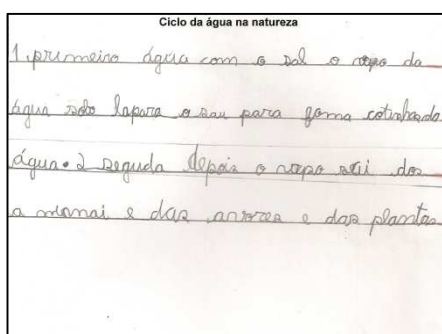 Ciclo da água na natureza
1. primeiro água com o sol o vapo da
água sobe lapara o sau para foma cotinhas da
água. 2 segunda depois o vapo sai dos
a nimai e das arvores e das plantas